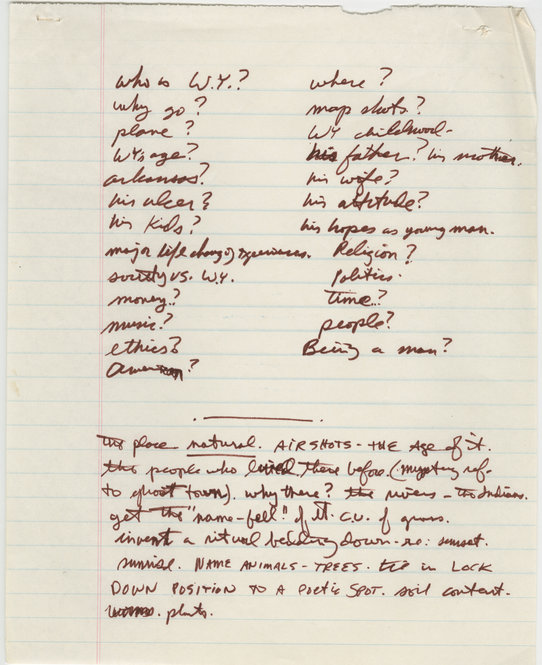 who is W.Y.?
why go?
plane?
WY's age?
arkansas?
his ulcer?
his kids?
major life changing experiences.
society vs. W.Y.
money?
music?
ethics?
?
where?
map shots?
WY childhood-
his father? his mother.
his wife?
his attitude?
his hopes as young man.
Religion?
Politics.
time?
people?
Being a man?
The place natural. AIRSHOTS - THE Age of it.
the people who lived there before. (mystery ref-
to ghost town). why there? the rivers - the Indians.
get the "name-feel" of it. C.U. of grass.
invent a ritual bedding down - re: sunset.
sunrise. NAME ANIMALS - TREES. in LOCK
DOWN POSITION TO A POETIC SPOT. soil content.
plants.